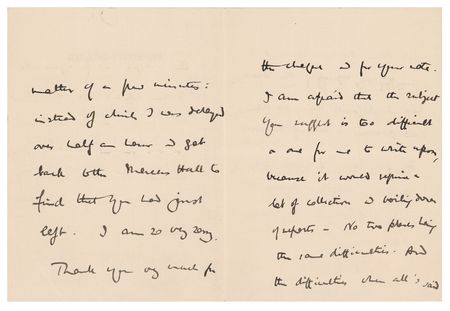 matter of a few minutes:
instead of which I was delayed
over half an hour & got
back to the Mercers Hall to
find that you had just
left. I am so very sorry.
Thank you very much for
the cheque & for your note.
I am afraid that the subject
you suggest is too difficult
a one for me to write upon,
because it would require a
lot of collection & boiling down
of reports – No two places having
the same difficulties. And
the difficulties when all's said